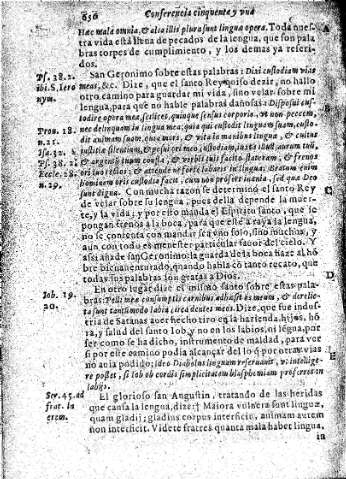 656
Conferencia cinquenta y vna
Hac mala omnia, & alia illis plura sunt lingua opera. Toda nues-
tra vida está llena de pecados de la lengua, que son pala
bras torpes de cumplimiento, y los demas ya referi-
dos.
Ps. 38. 2.
ibi. S. Iero
nym.
San Geronimo sobre estas palabras: Dixi custodiam vias
meas, &c. Dize, que el santo Rey quiso dezir, no hallo
otro camino para guardar mi vida, sino velar sobre mi
lengua, para que no hable palabras dañosas: Disposui cus-
todire opera mea, setires, quinque sensus corporis, vt non peccem,
Prou. 18.
n. 21.
Isa. 32.
Ps. 38. 2.
Eccle. 28.
n. 29.
nec delinquam in lingua mea: quia qui custodit linguam suam, custo-
dit animam suam; quia mors, & vita in manibus lingua, & cultus
iustitia silentium,
& argentum tuum confla, & verbis tuis facito stateram, & frenos
ori tuo rectos; & attende ne forte labaris in lingua: Beatum enim
hominem oris custodia facit, cum non
sunt digna. Con mucha razon se determinó el santo Rey
de velar sobre su lengua, pues della depende la muer-
te, y la vida; y por esso manda el Espiritu santo, que se
pongan frenos a la boca, para que esté a raya la lengua,
no se contenta con mandar se vno solo, sino muchos, y
aun con todo es menester particular fauor del cielo. Y
assi añade san Geronimo: la guarda de la boca haze al hõ
bre bienauenturado, quando habla cõ tanto recato, que
todas sus palabras son gratas a Dios.
Iob. 19.
20.
En otro lugar dize el mismo santo sobre estas pala-
bras: Pelli mea consumptis carnibus adhasit os meum, & derelic-
ta sunt tantummodo labia circa dentes meos. Dize, que fue indus-
tria de Satanas auer hecho tiro en la hazienda, hijos, hõ
ra, y salud del santo Iob, y no en los labios, ni légua, por
ser como se ha dicho, instrumento de maldad, para ver
si por este camino podia alcançar del lo que por otras vias
no auia podido; ideo Diabolus linguam reseruauit, vt intellige-
re posset, si Iob ob cordis simplicitatem blasphemiam proferret ex
labijs.
Ser. 45. ad
frat. in
erem.
El glorioso san Augustin, tratando de las heridas
que causa la lengua, dize: Maiora vulnera sunt linguæ,
quam gladij; gladius corpus interficit, animam autem
non interficit. Videte fratres quanta mala habet lingua,
in
A
C
D
E